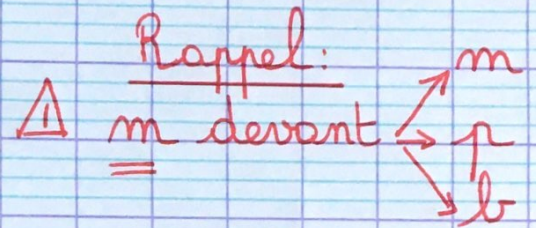 Rappel:
m
⚠ m devant → p
b